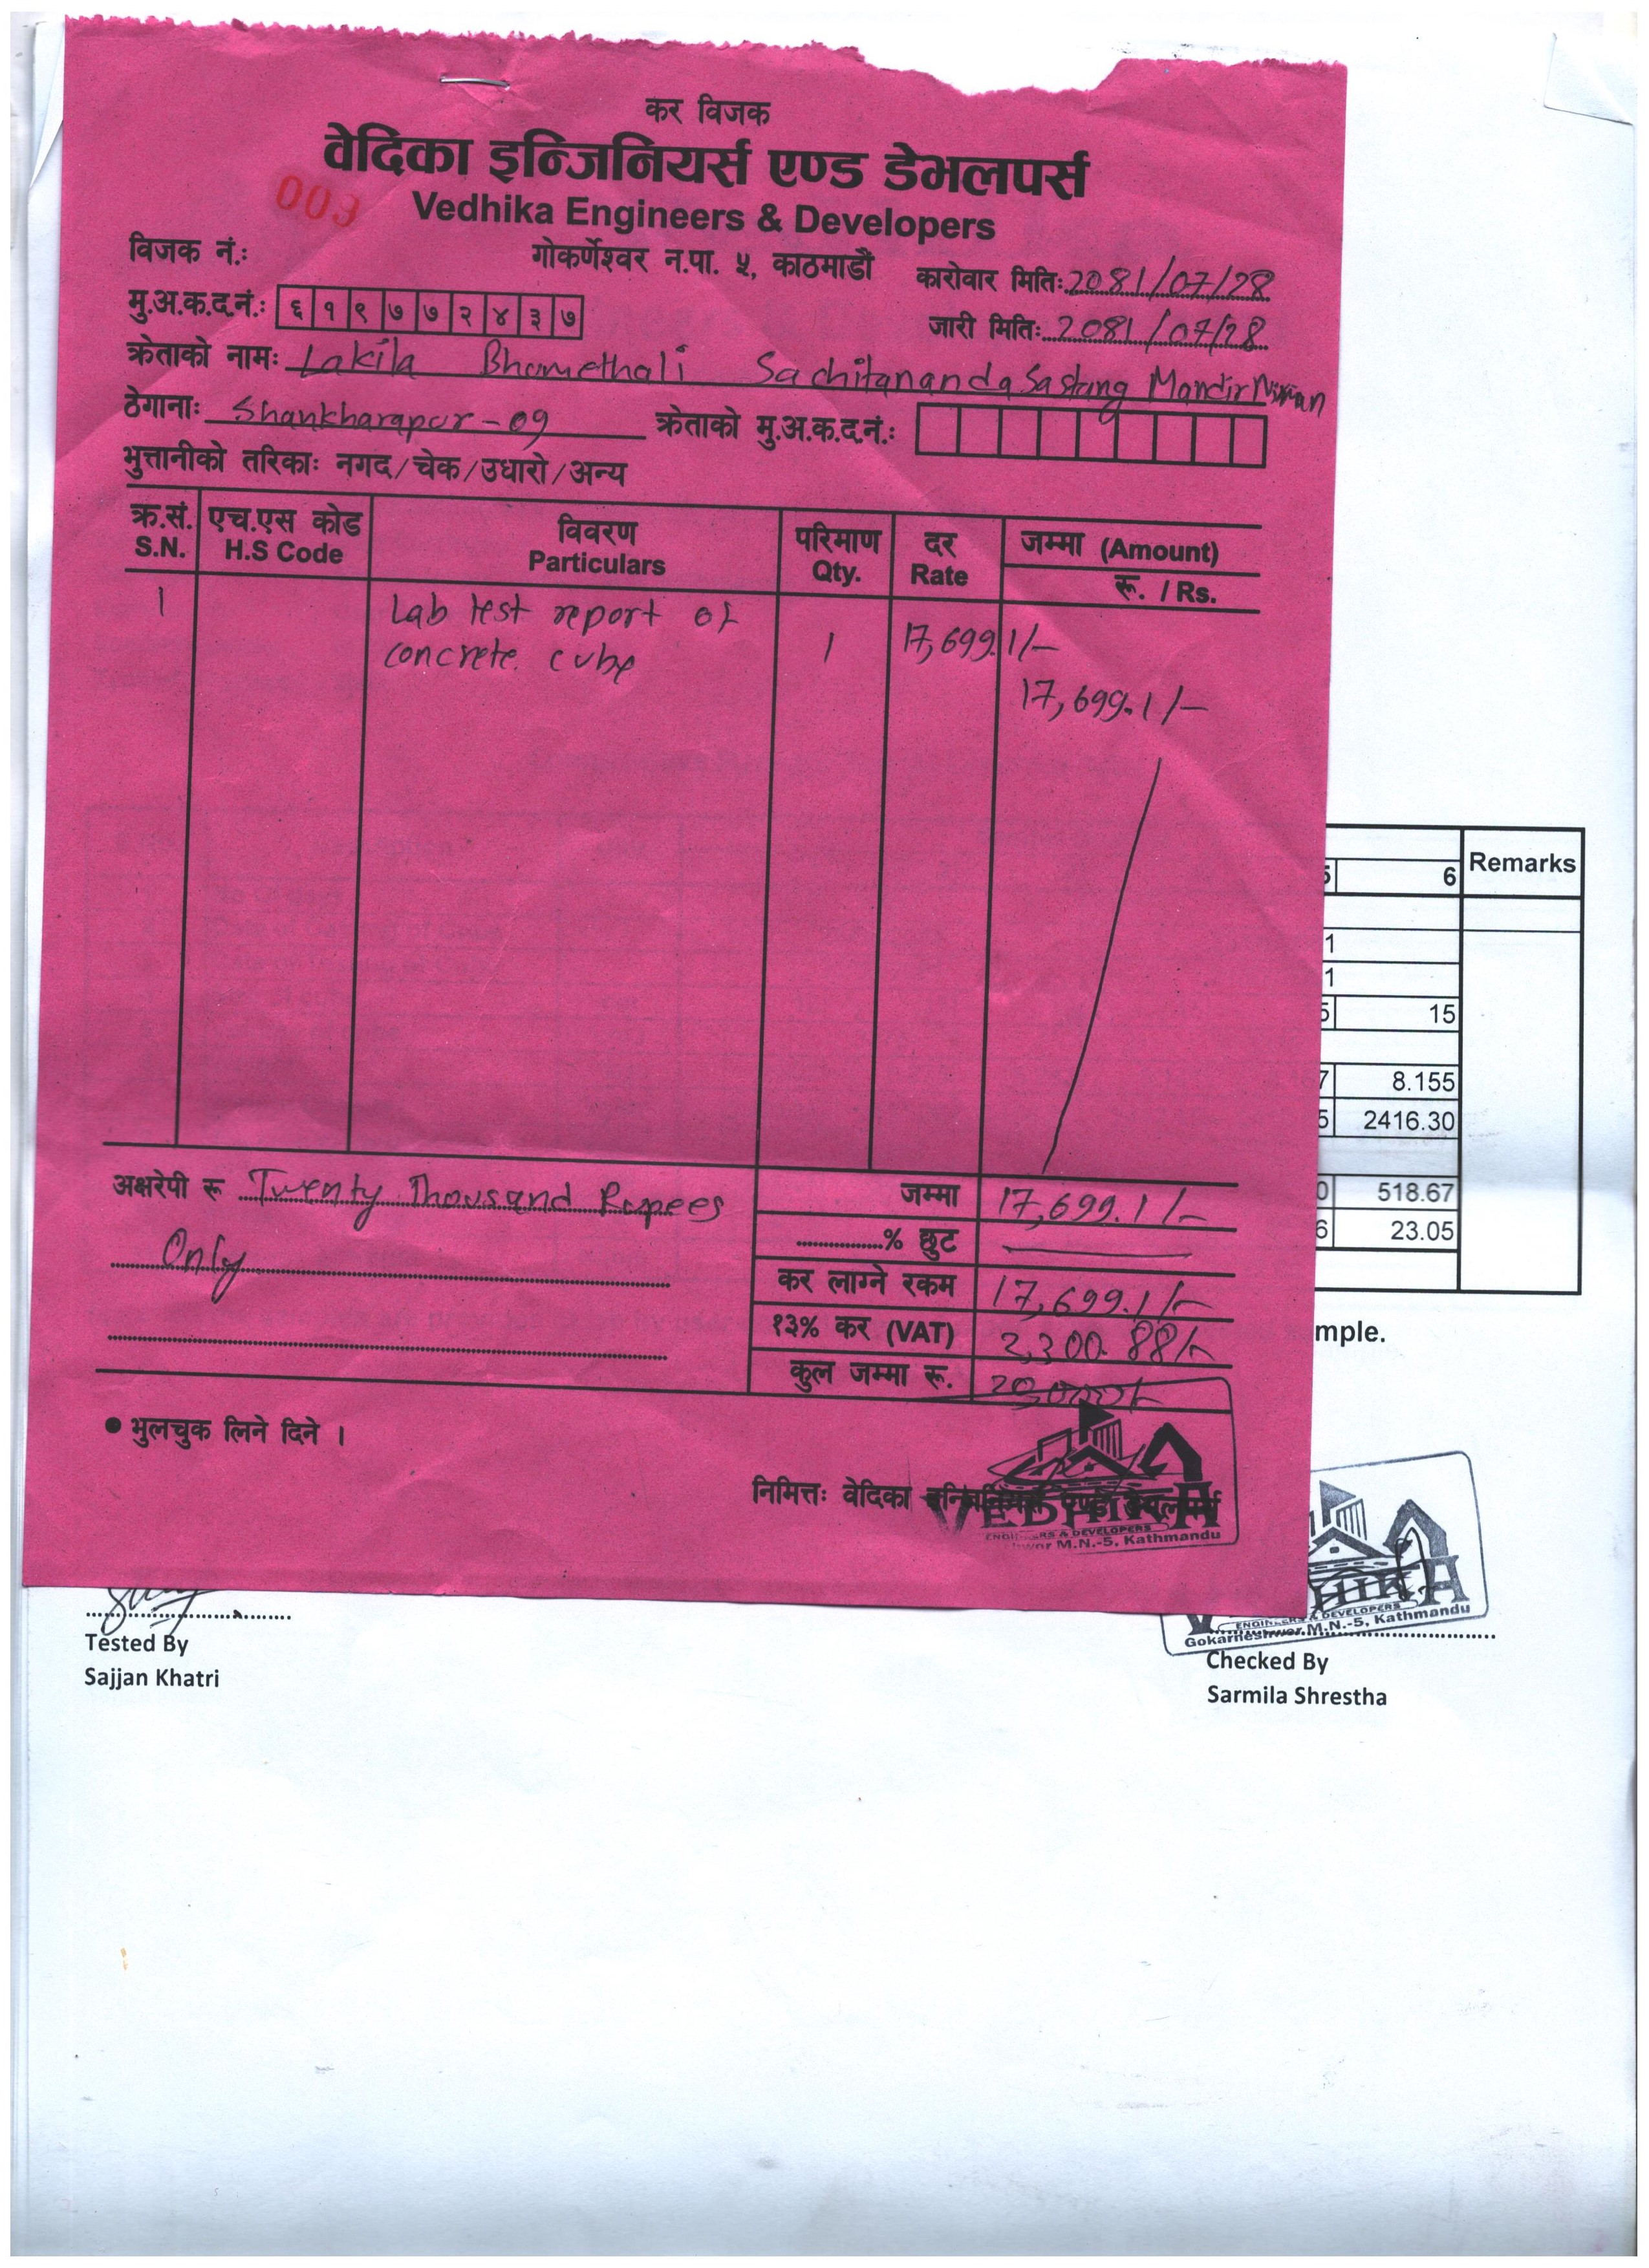 कर विजक
वेदिका इन्जिनियर्स एण्ड डेभलपर्स
003
Vedhika Engineers & Developers
विजक नं.:
गोकर्णेश्वर न.पा. ५, काठमाडौं
कारोवार मितिः 2081/07/28
मु.अ.क.द.नं.: ६१९७७२४३७
जारी मितिः 2081/07/28
क्रेताको नामः Lakila Bhamethali Sachitananda Sastang Mandir Nirman
ठेगानाः Shankharapur-09 क्रेताको मु.अ.क.द.नं.:
भुत्तानीको तरिकाः नगद/चेक/उधारो/अन्य
क्र.सं. एच.एस कोड विवरण परिमाण दर जम्मा (Amount)
S.N. H.S Code Particulars Qty. Rate रू. / Rs.
1 Lab test report of
concrete cube 1 17,699.1/-
17,699.1/-
अक्षरेपी रू Twenty Thousand Rupees
Only
जम्मा 17,699.1/-
% छुट
कर लाग्ने रकम 17,699.1/-
१३% कर (VAT) 2,300.88/-
कुल जम्मा रू. 20,000/-
● भुलचुक लिने दिने ।
निमित्तः वेदिका इन्जिनियर्स एण्ड डेभलपर्स
VEDHIKA
ENGINEERS & DEVELOPERS
M.N.-5, Kathmandu
6 Remarks
1
1
5 15
7 8.155
5 2416.30
0 518.67
6 23.05
mple.
ENGINEERS & DEVELOPERS
Gokarneshwor M.N.-5, Kathmandu
Tested By
Sajjan Khatri
Checked By
Sarmila Shrestha